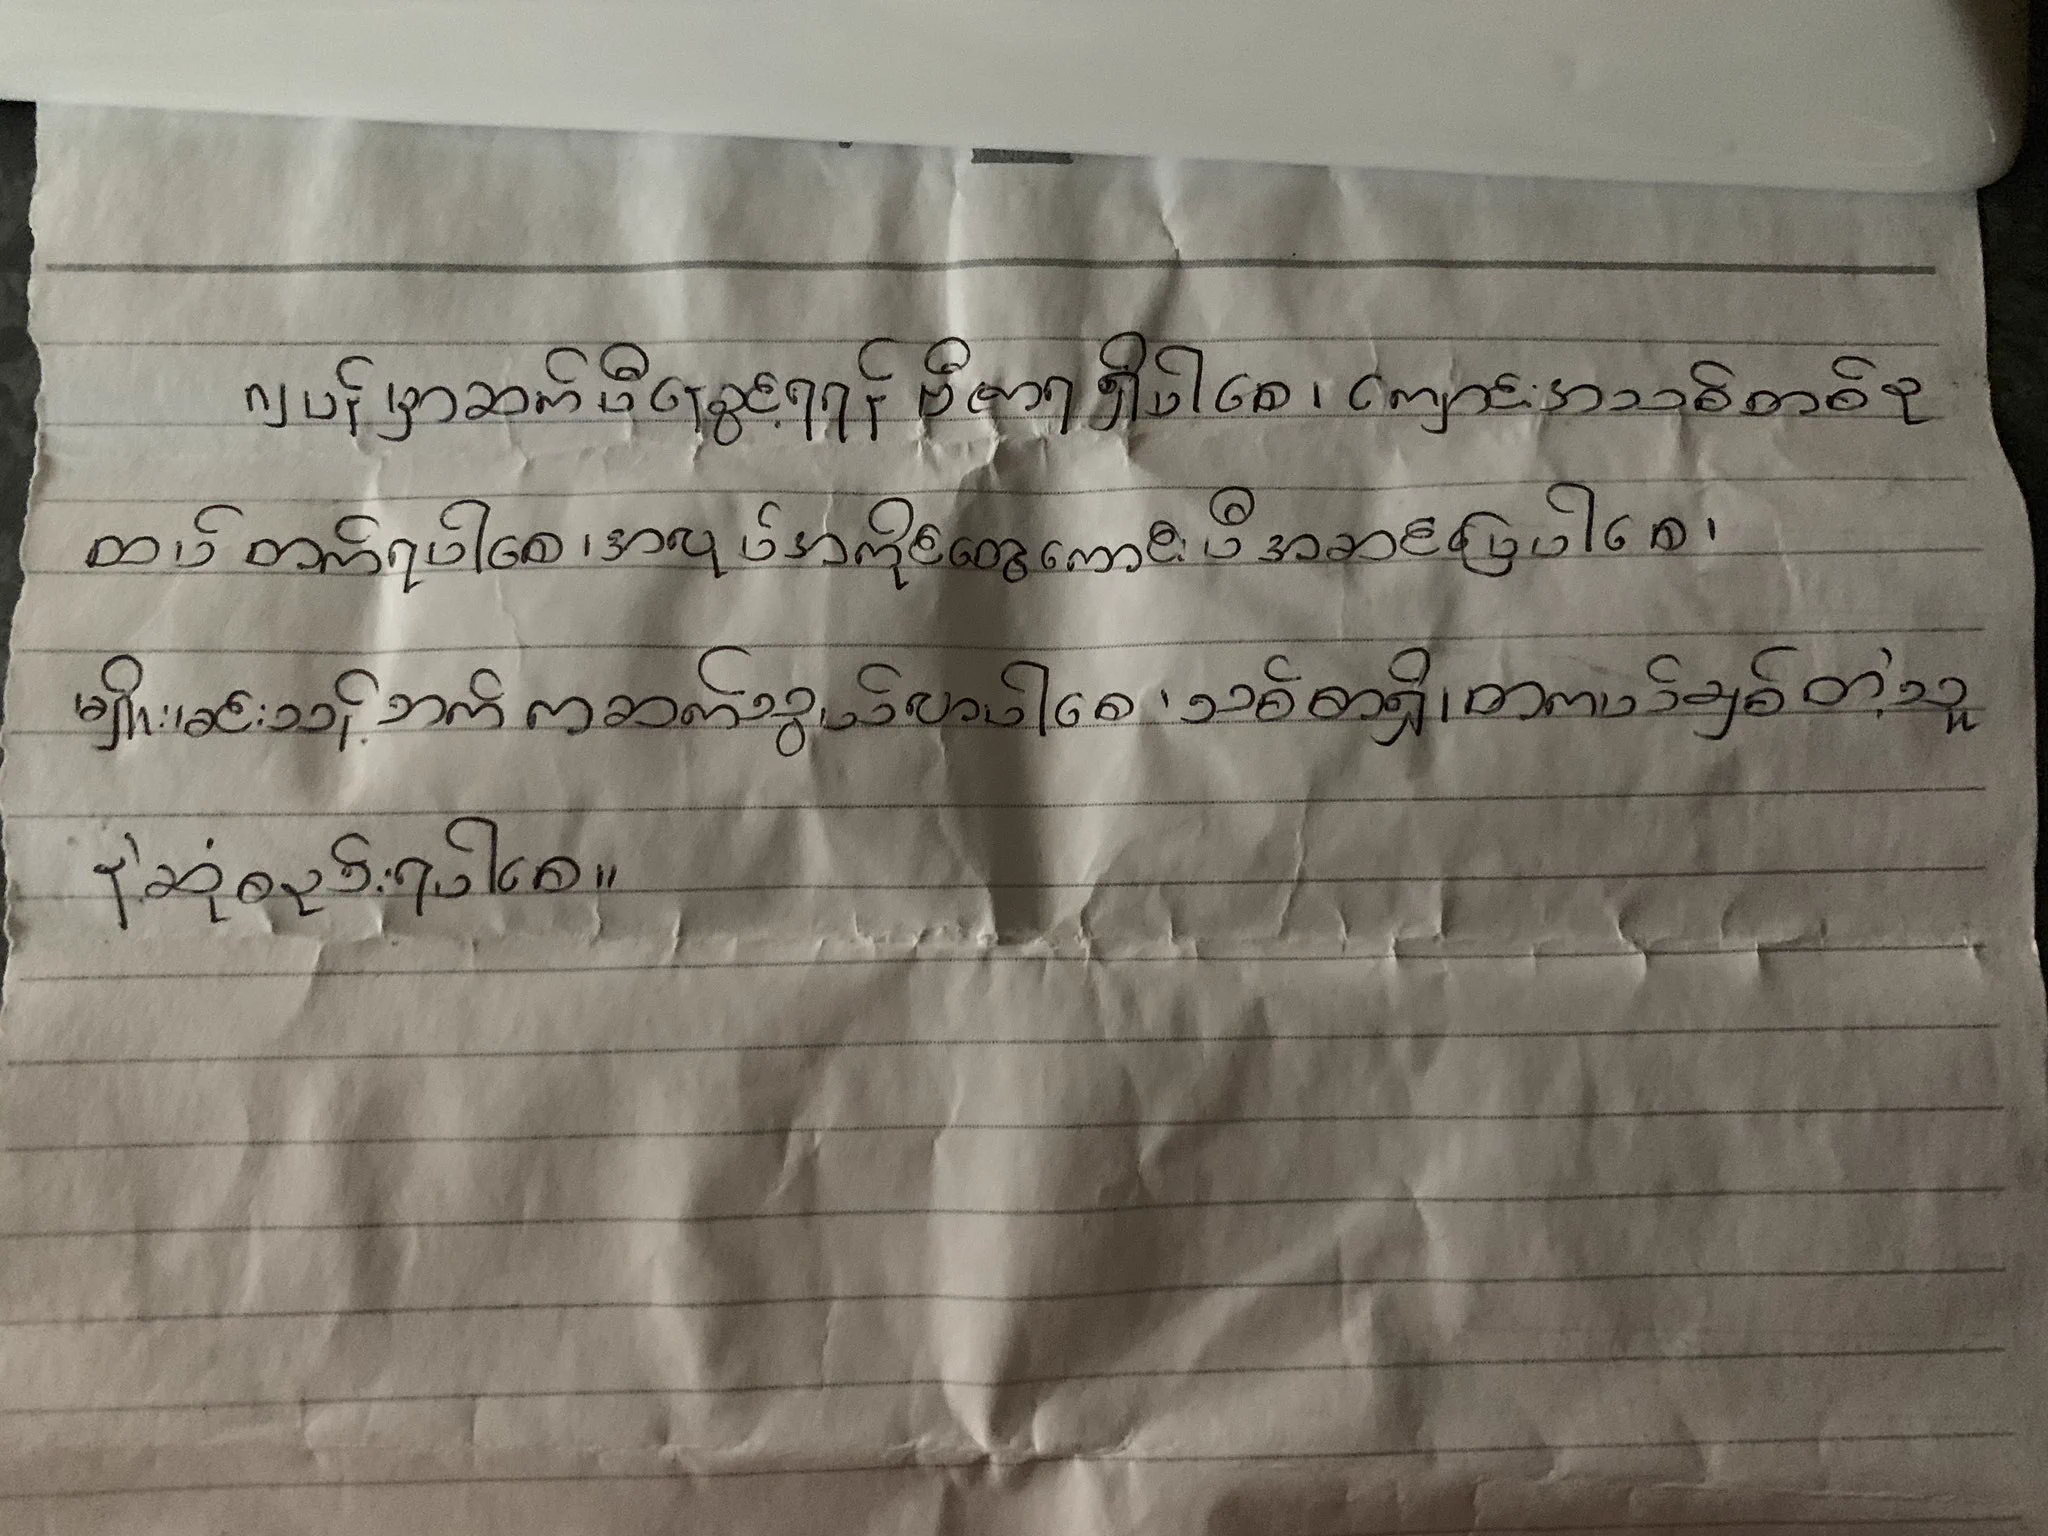 ဂျပန်မှာဆက်ပီးနေခွင့်ရရန် ဗီဇာရရှိပါစေ၊ ကျောင်းအသစ်တစ်ခု
ထပ်တက်ရပါစေ၊အလုပ်အကိုင်တွေကောင်းပီးအဆင်ပြေပါစေ၊
မျိုးမင်းသန့်ဘက်ကဆက်သွယ်လာပါစေ၊သစ္စာရှိ၊တကယ်ချစ်တဲ့သူ
နဲ့ဆုံစည်းရပါစေ။